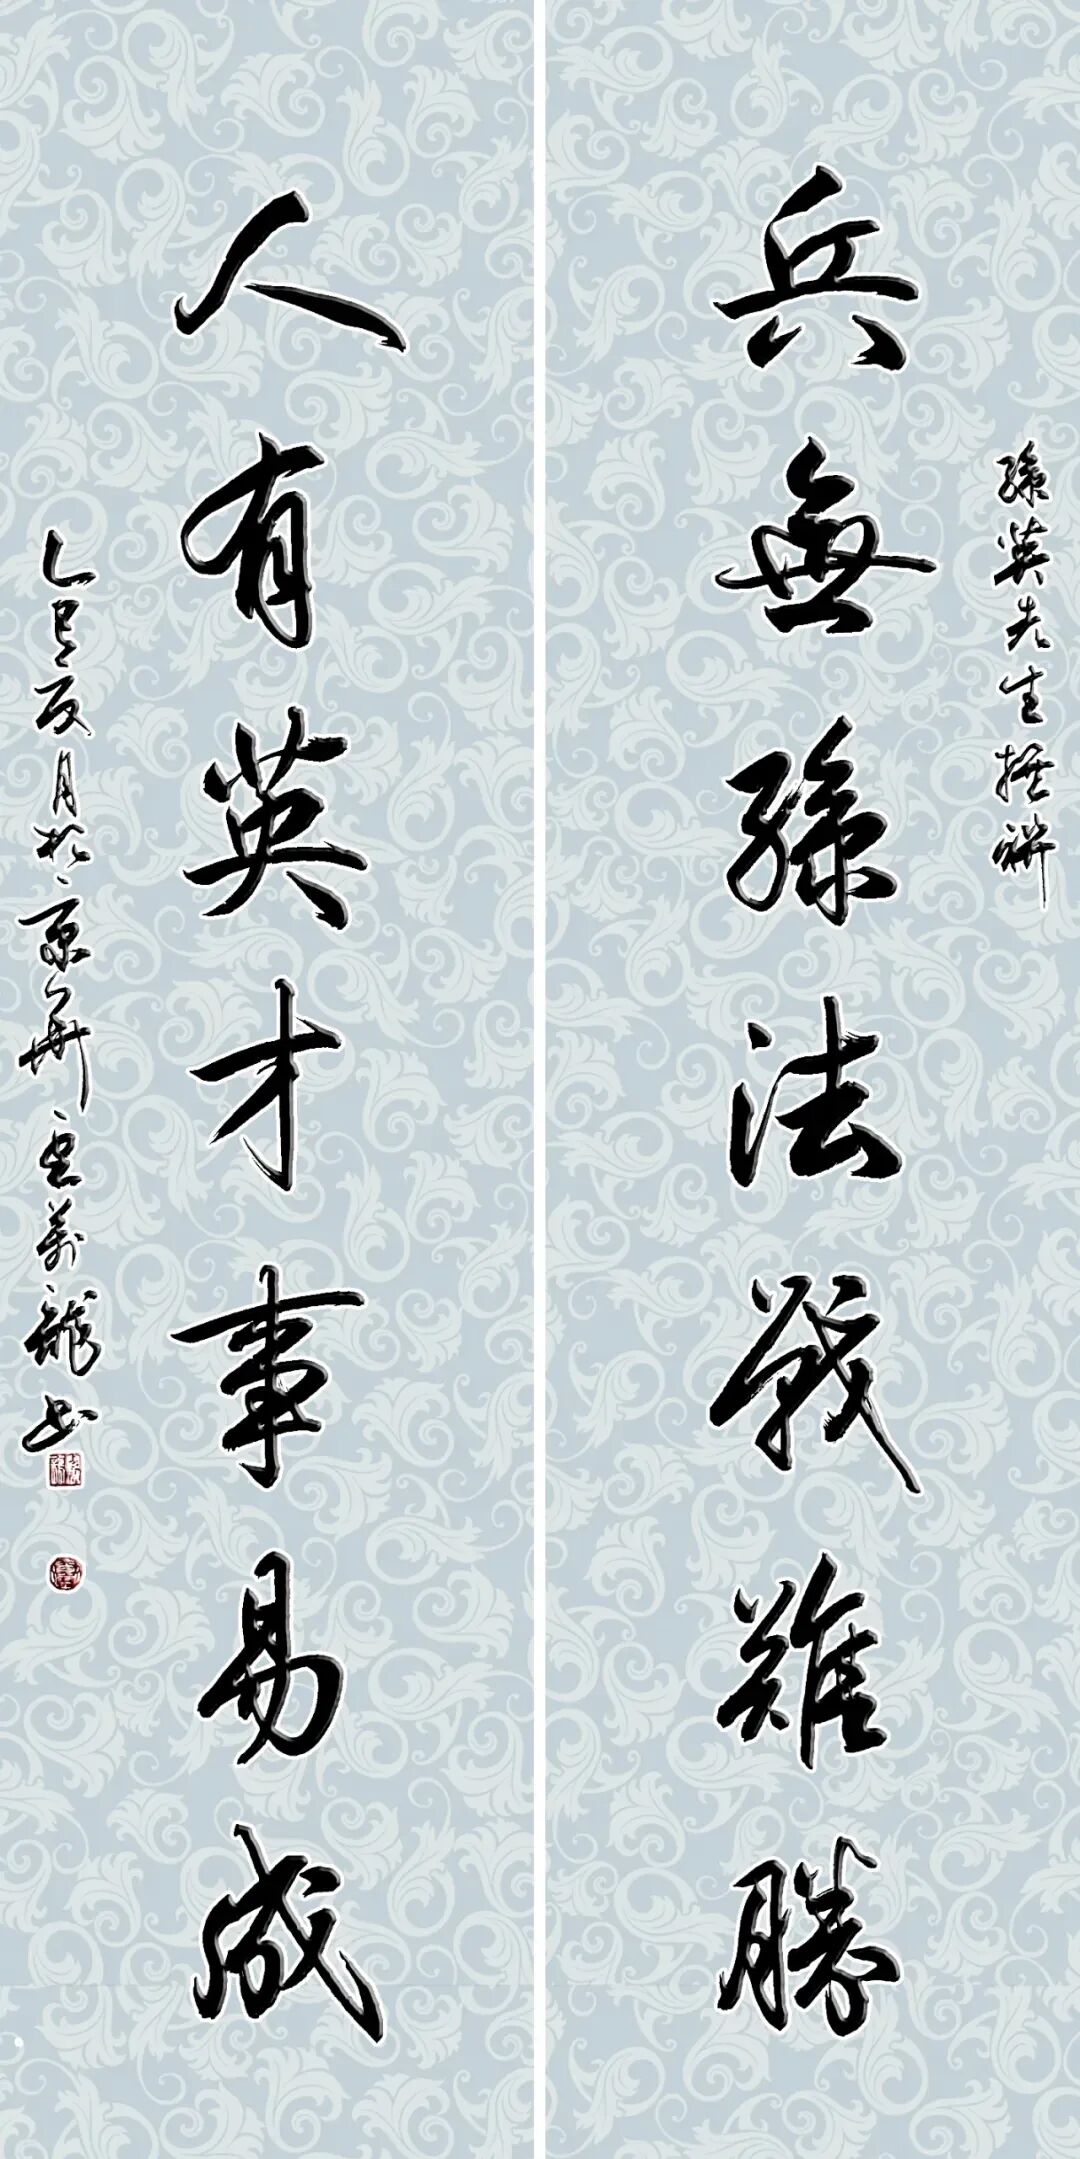 孫英先生撰聯
兵無孫法戰難勝
人有英才事易成
乙巳夏月於京華萬龍書